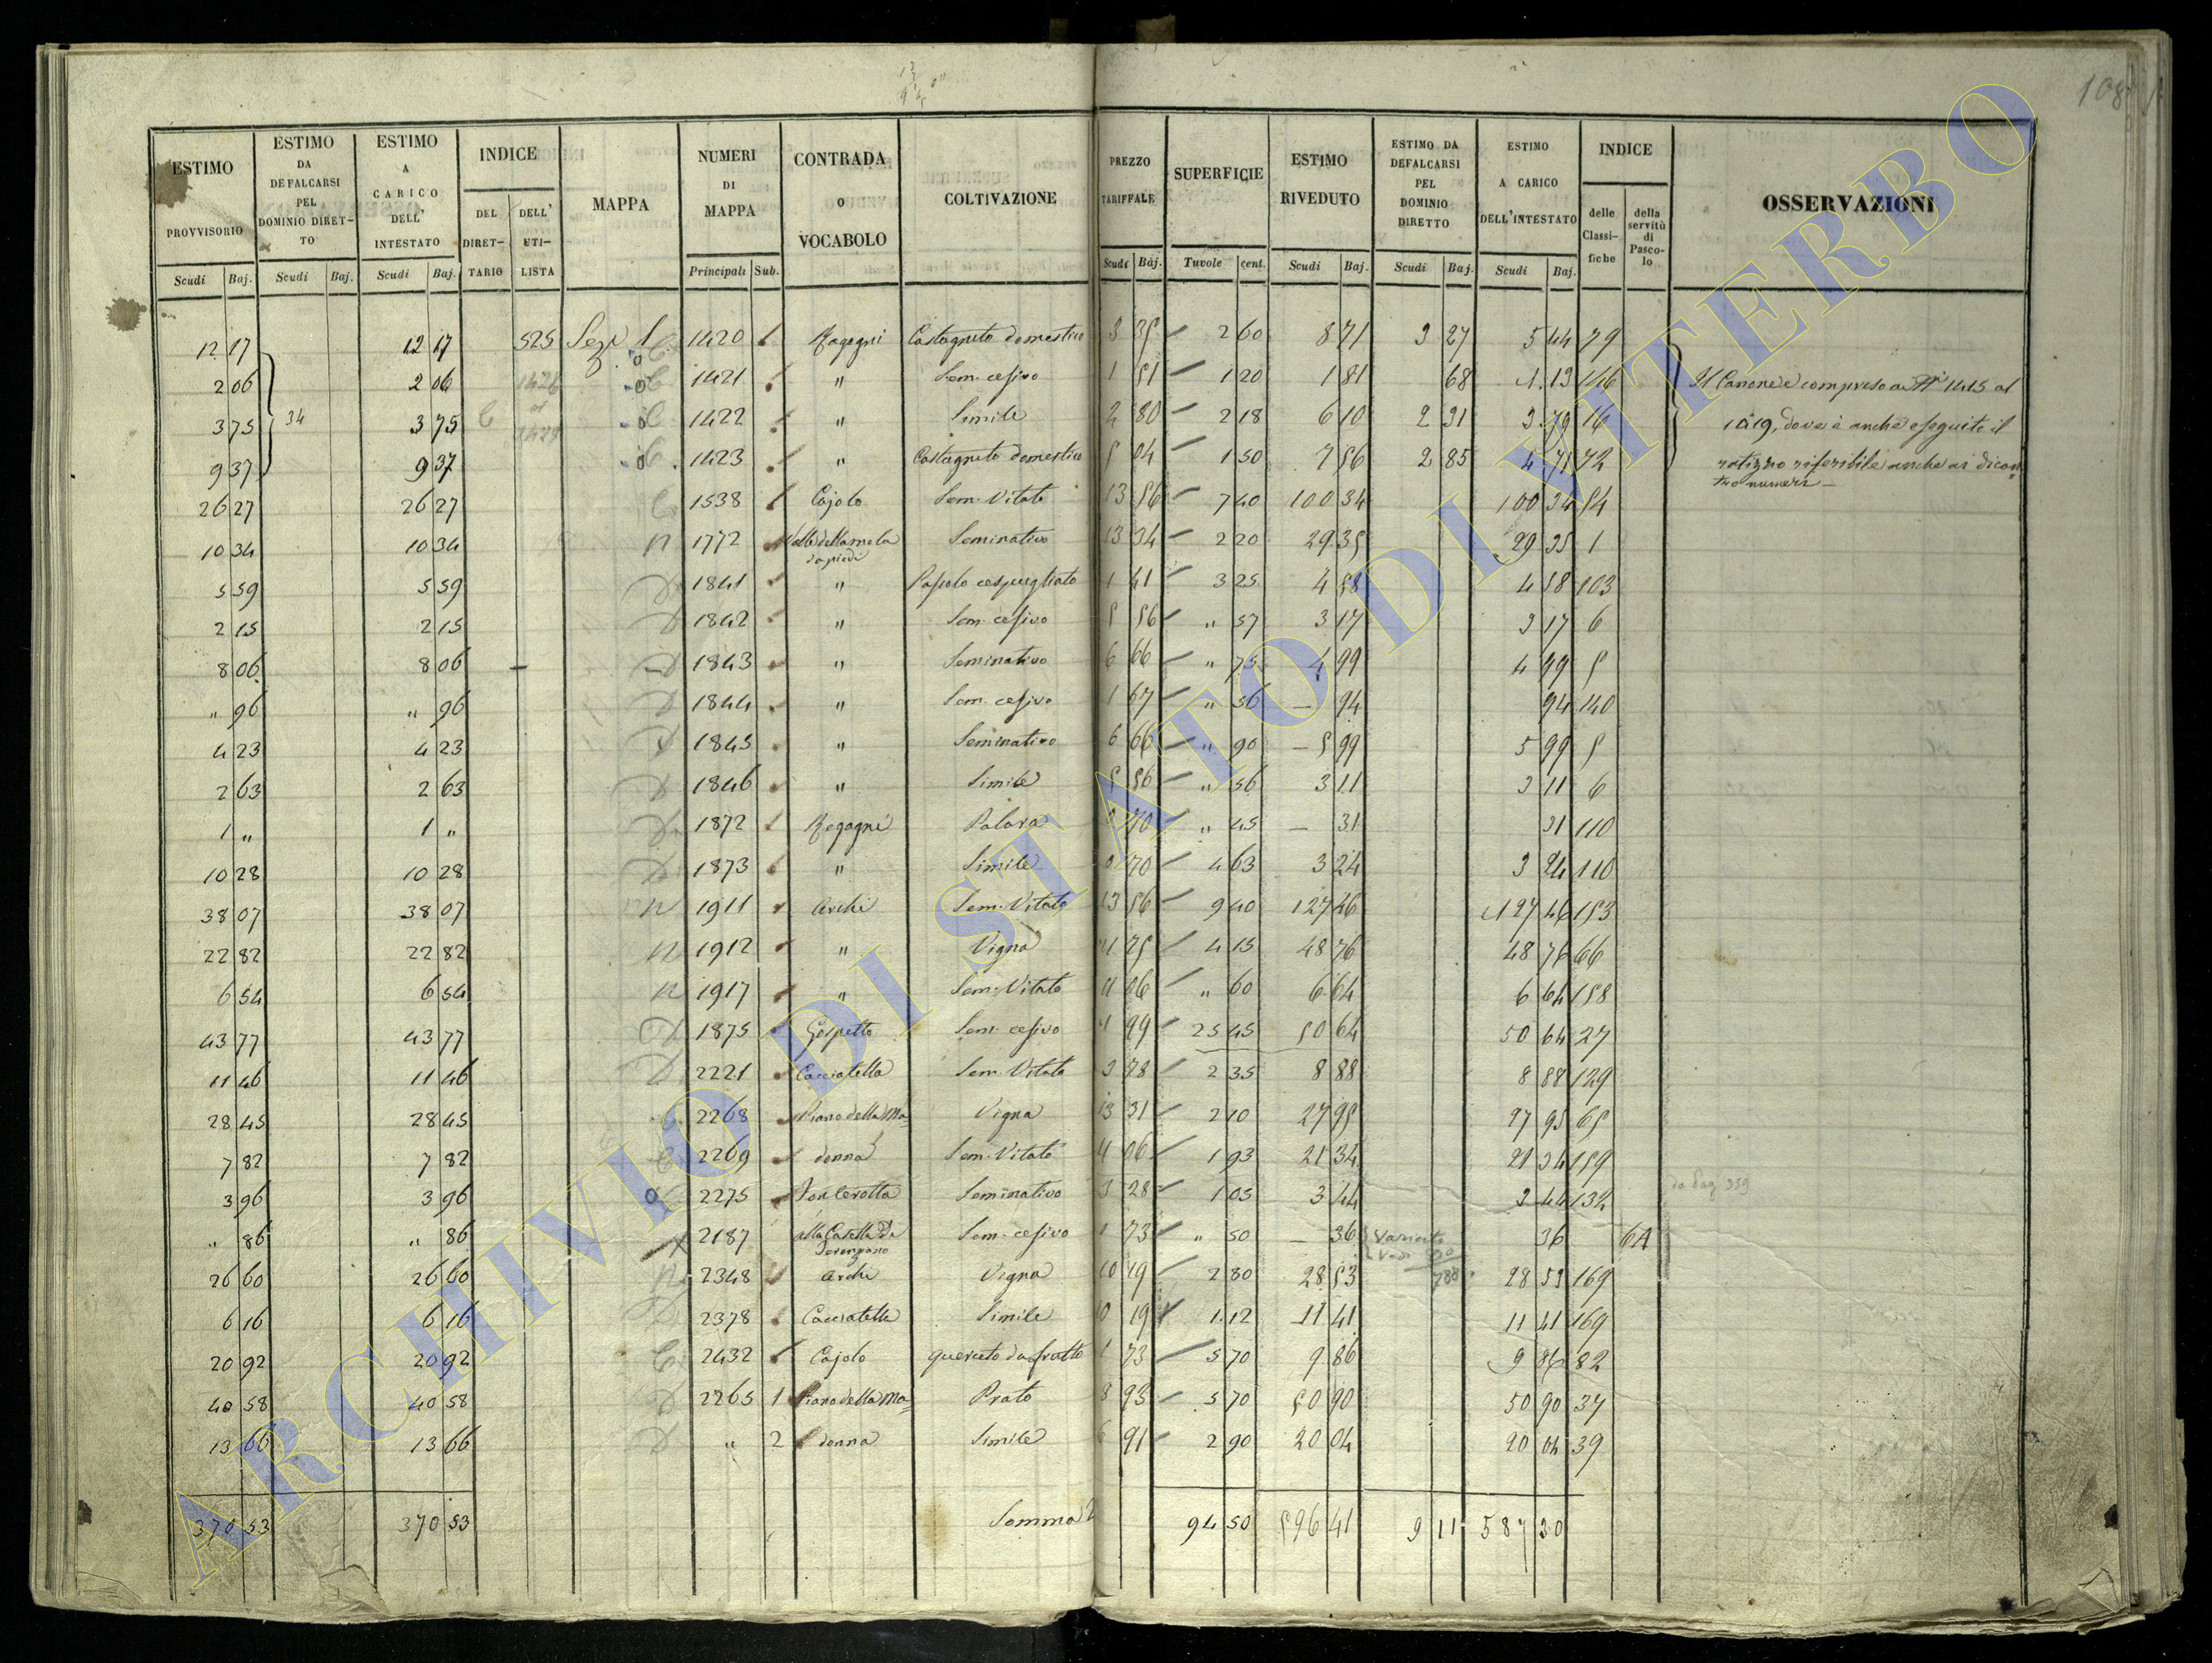 108
ESTIMO PROVVISORIO Scudi Baj. | ESTIMO DA DEFALCARSI PEL DOMINIO DIRETTO Scudi Baj. | ESTIMO A CARICO DELL' INTESTATO Scudi Baj. | INDICE DEL DIRETTARIO DELL' UTILISTA | MAPPA | NUMERI DI MAPPA Principali Sub. | CONTRADA O VOCABOLO | COLTIVAZIONE | PREZZO TARIFFALE Scudi Baj. | SUPERFICIE Tavole cent. | ESTIMO RIVEDUTO Scudi Baj. | ESTIMO DA DEFALCARSI PEL DOMINIO DIRETTO Scudi Baj. | ESTIMO A CARICO DELL'INTESTATO Scudi Baj. | INDICE delle Classifiche della servitù di Pascolo | OSSERVAZIONI
12 17 | 12 17 | 525 | Sez. 1 | 1420 | Ragagni | Castagneto domestico | 3 35 | 2 60 | 8 71 | 3 27 | 5 44 | 79
2 06 | 2 06 | 1421 | " | Sem. cesivo | 1 51 | 1 20 | 1 81 | 68 | 1 13 | 146 | Il Canone è compreso ai Ni 1415 al
3 75 | 34 | 3 75 | 1422 | " | Simile | 2 80 | 2 18 | 6 10 | 2 31 | 3 79 | 16 | 1419, dove è anche eseguito il
9 37 | 9 37 | 1423 | " | Castagneto domestico | 5 04 | 1 50 | 7 56 | 2 85 | 4 71 | 72 | riferibile anche ai dicon
tro numeri
26 27 | 26 27 | 1538 | Cajolo | Sem. Vitato | 13 56 | 7 40 | 100 34 | 100 34 | 54
10 34 | 10 34 | n | 1772 | Valle della mola da piedi | Seminativo | 13 34 | 2 20 | 29 35 | 29 35 | 1
5 59 | 5 59 | 1841 | " | Pascolo cespugliato | 1 41 | 3 25 | 4 58 | 4 58 | 103
2 15 | 2 15 | 1842 | " | Sem. cesivo | 5 56 | " 57 | 3 17 | 3 17 | 6
8 06 | 8 06 | 1843 | " | Seminativo | 6 66 | " 75 | 4 99 | 4 99 | 5
" 96 | " 96 | 1844 | " | Sem. cesivo | 1 67 | " 56 | — 94 | 94 | 140
4 23 | 4 23 | 1845 | " | Seminativo | 6 66 | " 90 | 5 99 | 5 99 | 5
2 63 | 2 63 | 1846 | " | Simile | 5 56 | " 56 | 3 11 | 3 11 | 6
1 " | 1 " | 1872 | Ragagni | Palara | 0 70 | " 45 | — 31 | 31 | 110
10 28 | 10 28 | 1873 | " | Simile | 0 70 | 4 63 | 3 24 | 3 24 | 110
38 07 | 38 07 | n | 1911 | Archi | Sem. Vitato | 13 56 | 9 40 | 127 46 | 127 46 | 153
22 82 | 22 82 | n | 1912 | " | Vigna | 11 75 | 4 15 | 48 76 | 48 76 | 66
6 54 | 6 54 | n | 1917 | " | Sem. Vitato | 11 06 | " 60 | 6 64 | 6 64 | 158
43 77 | 43 77 | 1875 | Sem. cesivo | 1 99 | 25 45 | 50 64 | 50 64 | 27
11 46 | 11 46 | 2221 | Cacciatella | Sem. Vitato | 3 78 | 2 35 | 8 88 | 8 88 | 129
28 45 | 28 45 | 2268 | Piano della Ma= | Vigna | 13 31 | 2 10 | 27 95 | 27 95 | 65
7 82 | 7 82 | 2269 | donna | Sem. Vitato | 11 06 | 1 93 | 21 34 | 21 34 | 159
3 96 | 3 96 | 2275 | Seminativo | 3 28 | 1 05 | 3 44 | 3 44 | 132 | da pag 359
" 86 | " 86 | 2187 | alla Casella | Sem. cesivo | 1 73 | " 50 | — 36 | Variato | 36 | 6A
26 60 | 26 60 | n | 2348 | Archi | Vigna | 10 19 | 2 80 | 28 53 | 28 53 | 169
6 16 | 6 16 | 2378 | Cacciatella | Simile | 10 19 | 1 12 | 11 41 | 11 41 | 169
20 92 | 20 92 | 2432 | Cajolo | querceto da frutto | 1 73 | 5 70 | 9 86 | 9 86 | 82
40 58 | 40 58 | 2265 | 1 | Piano della Ma= | Prato | 8 93 | 5 70 | 50 90 | 50 90 | 37
13 66 | 13 66 | " | 2 | donna | Simile | 6 91 | 2 90 | 20 04 | 20 04 | 39
370 53 | 370 53 | Somma | 94 50 | 596 41 | 9 11 | 587 30
ARCHIVIO DI STATO DI VITERBO